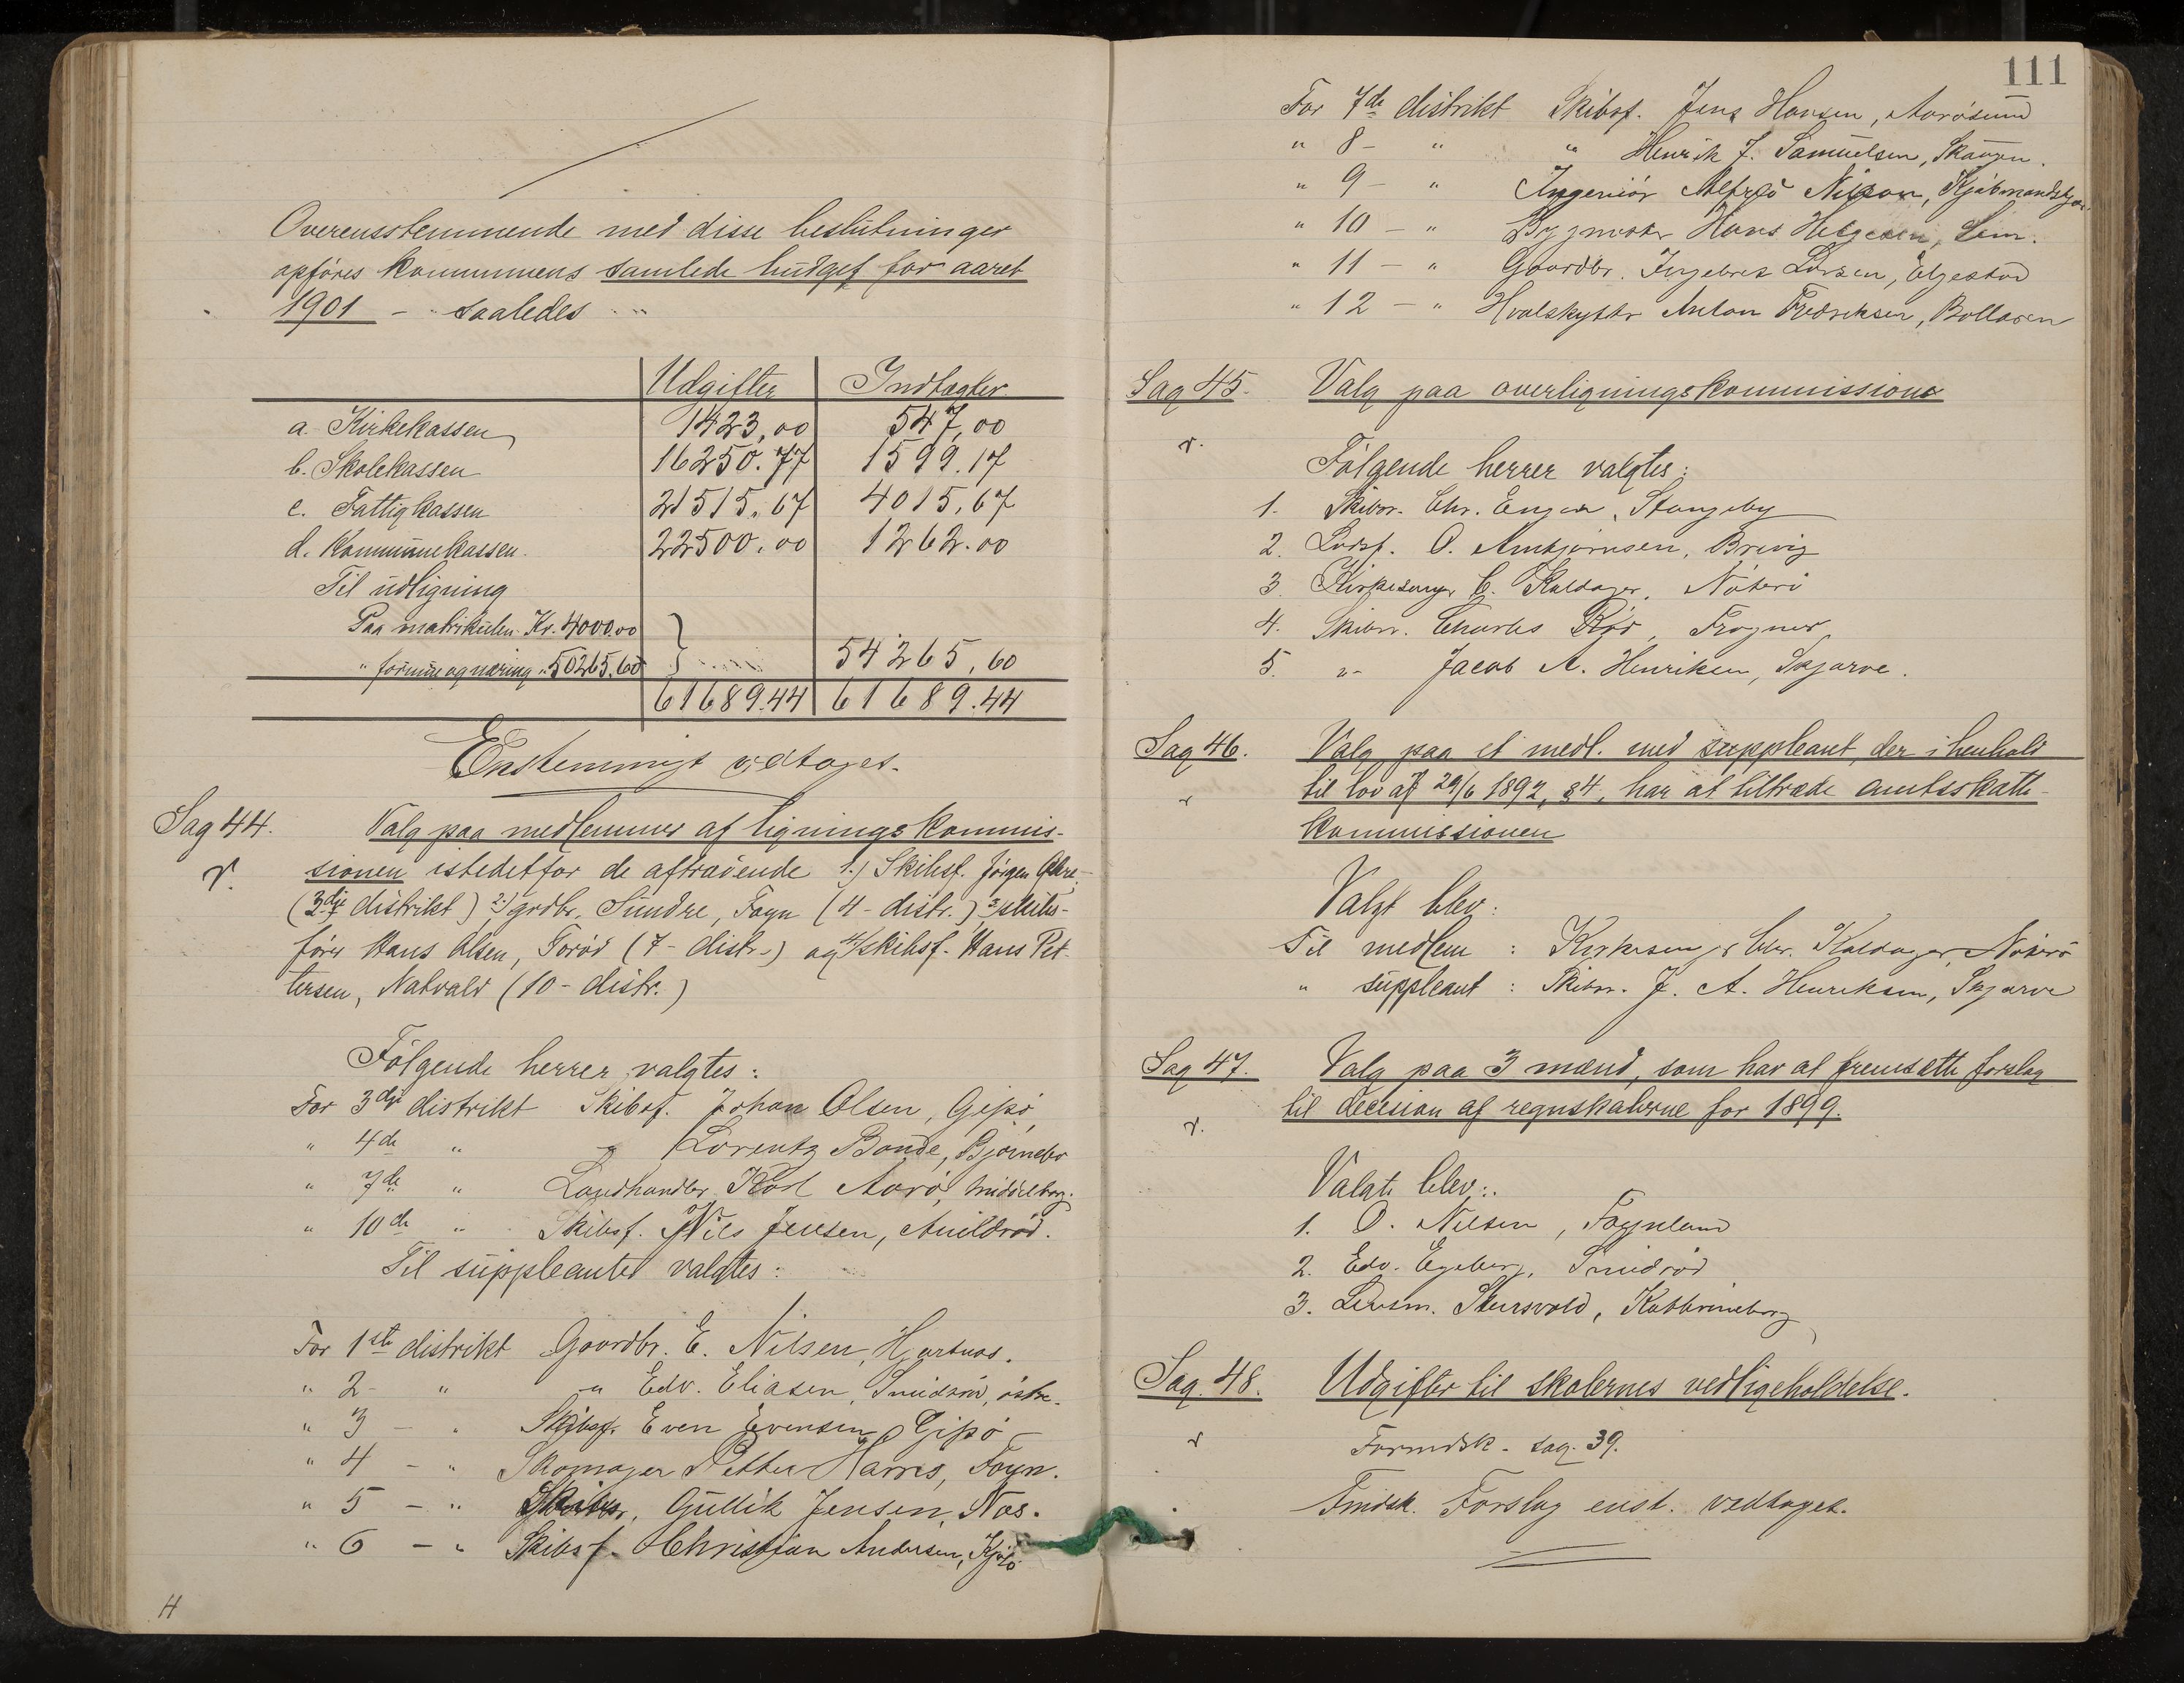 Overensstemmende med disse beslutninger
opføres kommunens samlede budget for aaret
1901 - saaledes
Udgifter Indtægter
a. Kirkekassen 1423,00 547,00
b. Skolekassen 16250.77 1599.17
c. Fattigkassen 21515.67 4015,67
d. Kommunekassen 22500.00 1262.00
Til udligning
Paa matrikulen Kr. 4000.00
" formue og næring " 50265.60 54265,60
61689.44 61689.44
Enstemmigt vedtages.
Sag 44. Valg paa medlemmer af ligningskommis-
sionen istedetfor de aftrædende 1.) Skibsf. Jørgen
(3die distrikt) 2.) grdbr. Sundre, Føyn (4 - distr.) 3) skibs-
fører Hans Olsen, Torød (7 - distr.) og 4) skibsf. Hans Pet-
tersen, Natvald (10 - distr.)
v.
Følgende herrer valgtes:
For 3die distrikt Skibsf. Johan Olsen, Gipø
" 4de " " Lorentz Bonde, Bjørnebo
" 7de " Landhandler Karl Aarø, Middelborg.
" 10de " Skibsf. Nils Jensen,
Til suppleanter valgtes:
For 1ste distrikt Gaardbr. E. Nilsen, Hjertnæs.
" 2 - " " Edv. Eliasen, Smidsrød, østre.
" 3 - " Skibsf. Even Evensen, Gipø
" 4 - " Skomager Petter Harris, Føyn.
" 5 - " Skibsr. Gullik Jensen, Næs.
" 6 - " Skibsf. Christian Andersen, Kjøpø
H
111
For 7de distrikt Skibsf. Jens Hansen, Aarøsund
" 8 - " " Henrik J. Samuelsen, Skallevold.
" 9 - " Ingeniør Alfred Nilson, Kjøbmandskjær
" 10 - " Bygmester Hans Helgesen, Lem.
" 11 - " Gaardbr. Ingebret Larsen, Elgestad
" 12 - " Hvalskytter Anton Fredriksen, Bollæren
Sag 45. Valg paa overligningskommission
v.
Følgende herrer valgtes:
1. Skibsr. Chr. Enger, Stangeby
2. Lodsf. O. Ambjørnsen, Brevig
3. Kirkesanger C. Kaldager, Nøterø
4. Skibsr. Charles Rød, Frogner
5. " Jacob A. Henriksen, Skjærve.
Sag 46. Valg paa et medl. med suppleant, der i henhold
til lov af 29/6 1892, §4, har at tiltræde amtsskatte-
kommissionen
v
Valgt blev:
Til medlem : Kirkesanger Chr. Kaldager, Nøterø
" suppleant : Skibsr. J. A. Henriksen, Skjærve
Sag 47. Valg paa 3 mænd, som har at fremsætte forslag
til decision af regnskaberne for 1899.
v.
Valgte blev:
1. O. Nilsen, Føynland
2. Edv. Egeberg, Smidsrød
3. Lensm. Stensvold, Kathrineborg
Sag. 48. Udgifter til skolernes vedligeholdelse.
v
Formdsk. sag. 39.
Fmdsk. Forslag enst. vedtaget.